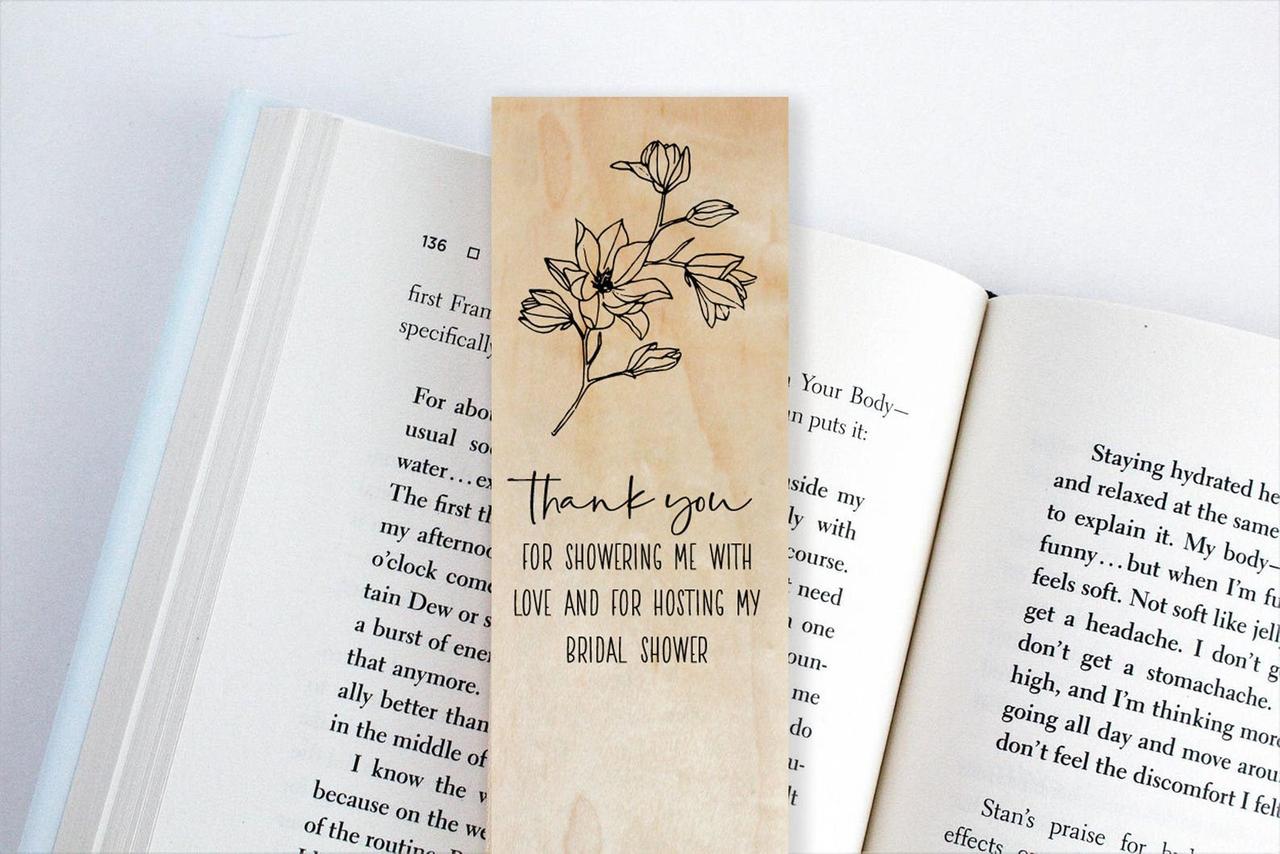 136
first
specifically
For
usual
water…
The first
my
o'clock
tain Dew or
a burst of
that anymore.
ally better than
in the middle of
I know the
because on the
of the routine.
Thank you
FOR SHOWERING ME WITH
LOVE AND FOR HOSTING MY
BRIDAL SHOWER
Your Body—
puts it:
my
with
course.
need
one
me
do
Staying hydrated
and relaxed at the same
to explain it. My body—
funny…but when I'm
feels soft. Not soft like
get a headache. I don't
don't get a stomachache.
high, and I'm thinking
going all day and move
don't feel the discomfort I
Stan's praise for
effects